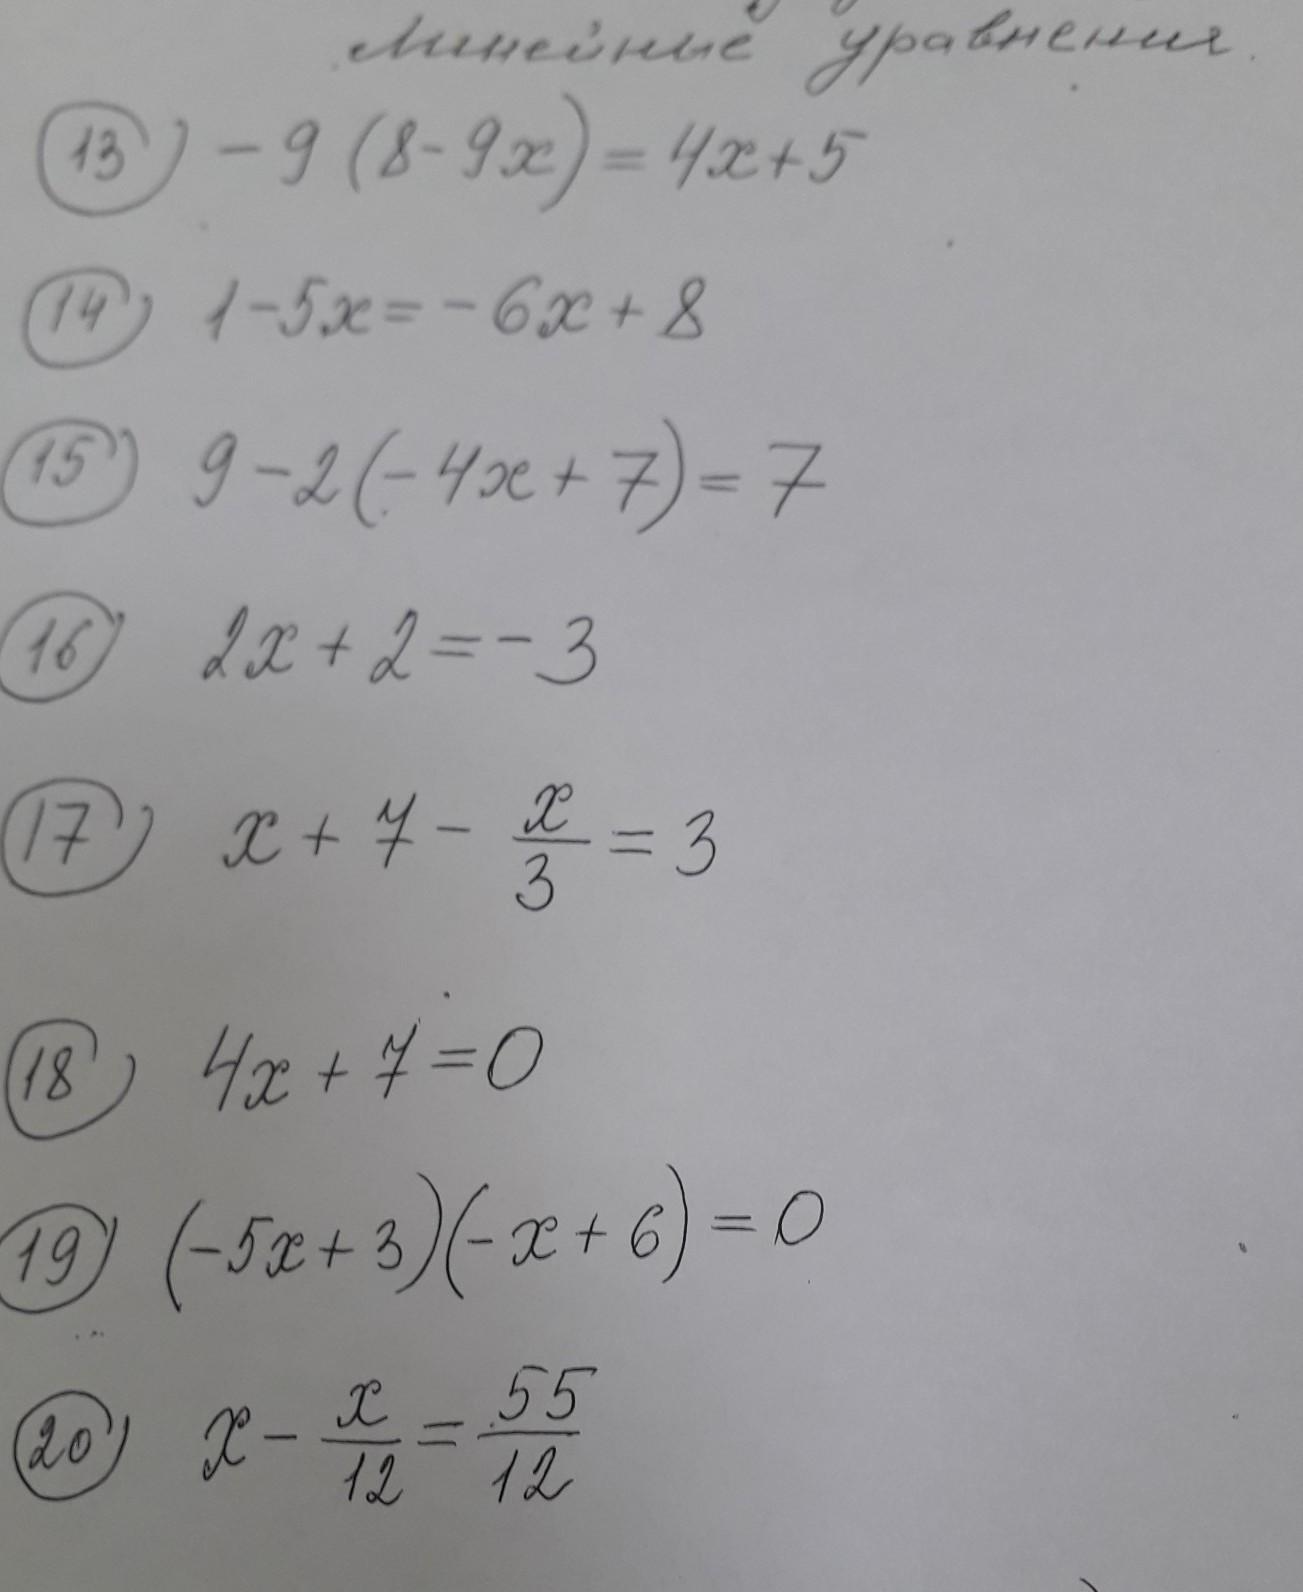 Линейные уравнения.
13) -9(8-9x)=4x+5
14) 1-5x=-6x+8
15) 9-2(-4x+7)=7
16) 2x+2=-3
17) x+7-x/3=3
18) 4x+7=0
19) (-5x+3)(-x+6)=0
20) x-x/12=55/12